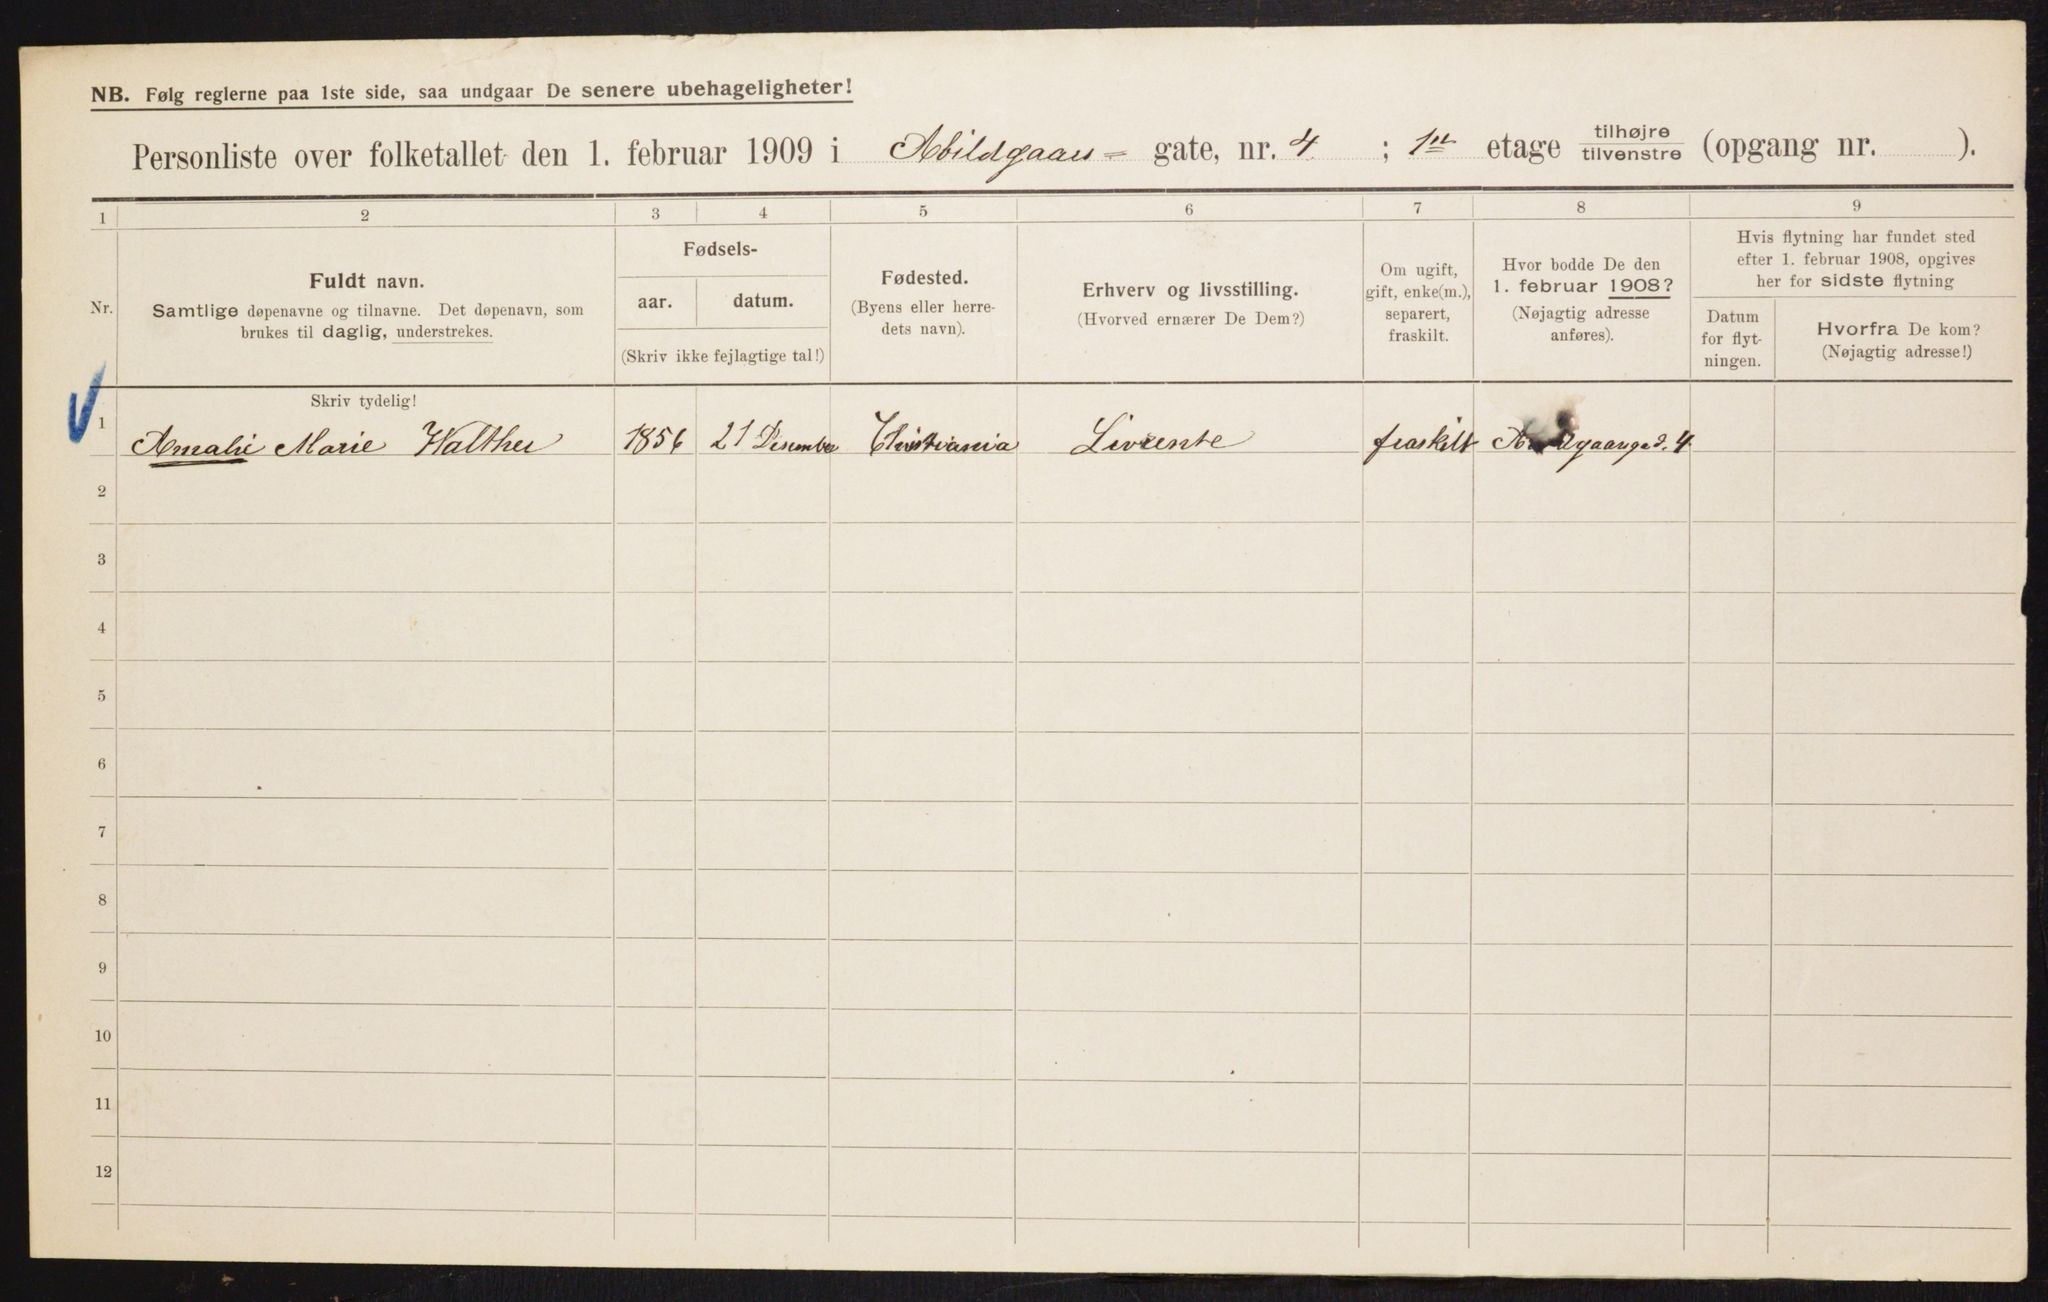 NB. Følg reglerne paa 1ste side, saa undgaar De senere ubehageligheter!
Personliste over folketallet den 1. februar 1909 i Abildgaards= gate, nr. 4 ; 1ste etage tilhøjre/tilvenstre (opgang nr. ).
1 2 3 4 5 6 7 8 9
Nr.
Fuldt navn.
Samtlige døpenavne og tilnavne. Det døpenavn, som
brukes til daglig, understrekes.
Fødsels-
aar. datum.
(Skriv ikke fejlagtige tal!)
Fødested.
(Byens eller herre-
dets navn).
Erhverv og livsstilling.
(Hvorved ernærer De Dem?)
Om ugift,
gift, enke(m.),
separert,
fraskilt.
Hvor bodde De den
1. februar 1908?
(Nøjagtig adresse
anføres).
Hvis flytning har fundet sted
efter 1. februar 1908, opgives
her for sidste flytning
Datum
for flyt-
ningen.
Hvorfra De kom?
(Nøjagtig adresse!)
Skriv tydelig!
1 Amalie Marie Walther 1856 21 Desember Christiania Livrente fraskilt 4
2
3
4
5
6
7
8
9
10
11
12